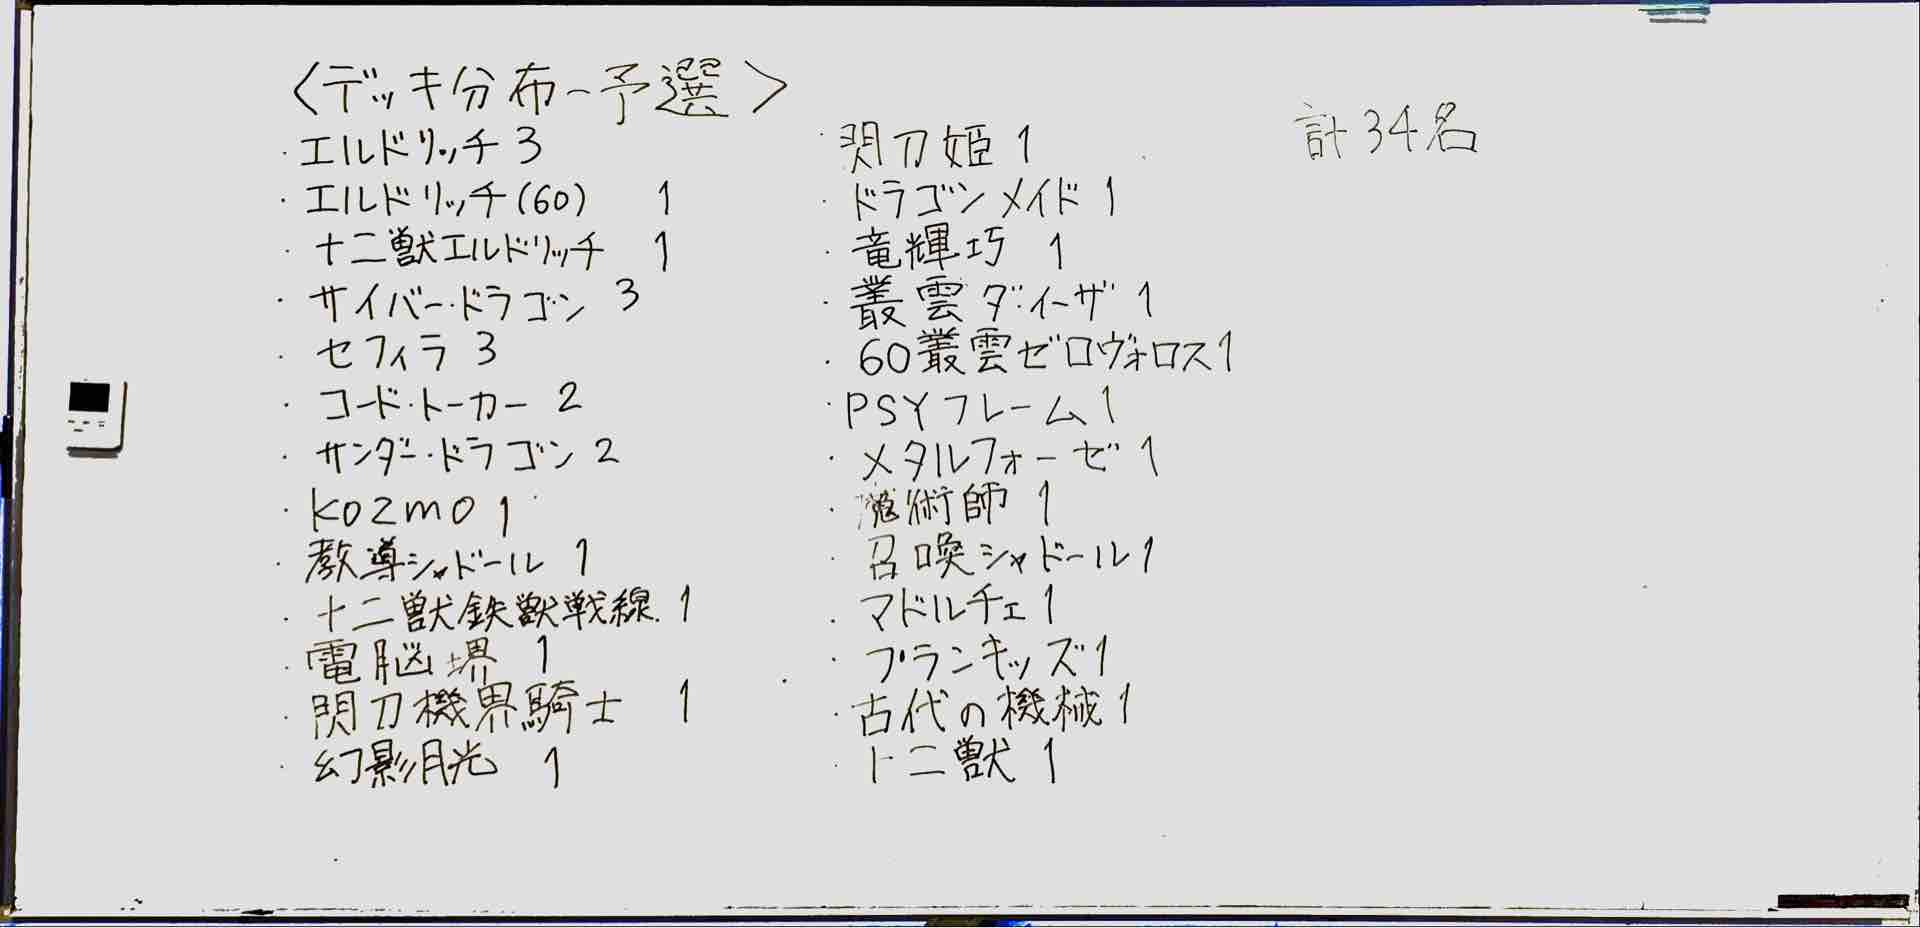 〈デッキ分布-予選〉
・エルドリッチ 3
・エルドリッチ(60) 1
・十二獣エルドリッチ 1
・サイバー・ドラゴン 3
・セフィラ 3
・コード・トーカー 2
・サンダー・ドラゴン 2
・kozmo 1
・教導シャドール 1
・十二獣鉄獣戦線 1
・電脳堺 1
・閃刀機界騎士 1
・幻影月光 1
・閃刀姫 1
・ドラゴンメイド 1
・竜輝巧 1
・叢雲ダ・イーザ 1
・60叢雲ゼロヴォロス1
・PSYフレーム 1
・メタルフォーゼ 1
・魔術師 1
・召喚シャドール 1
・マドルチェ 1
・プランキッズ 1
・古代の機械 1
・十二獣 1
計34名